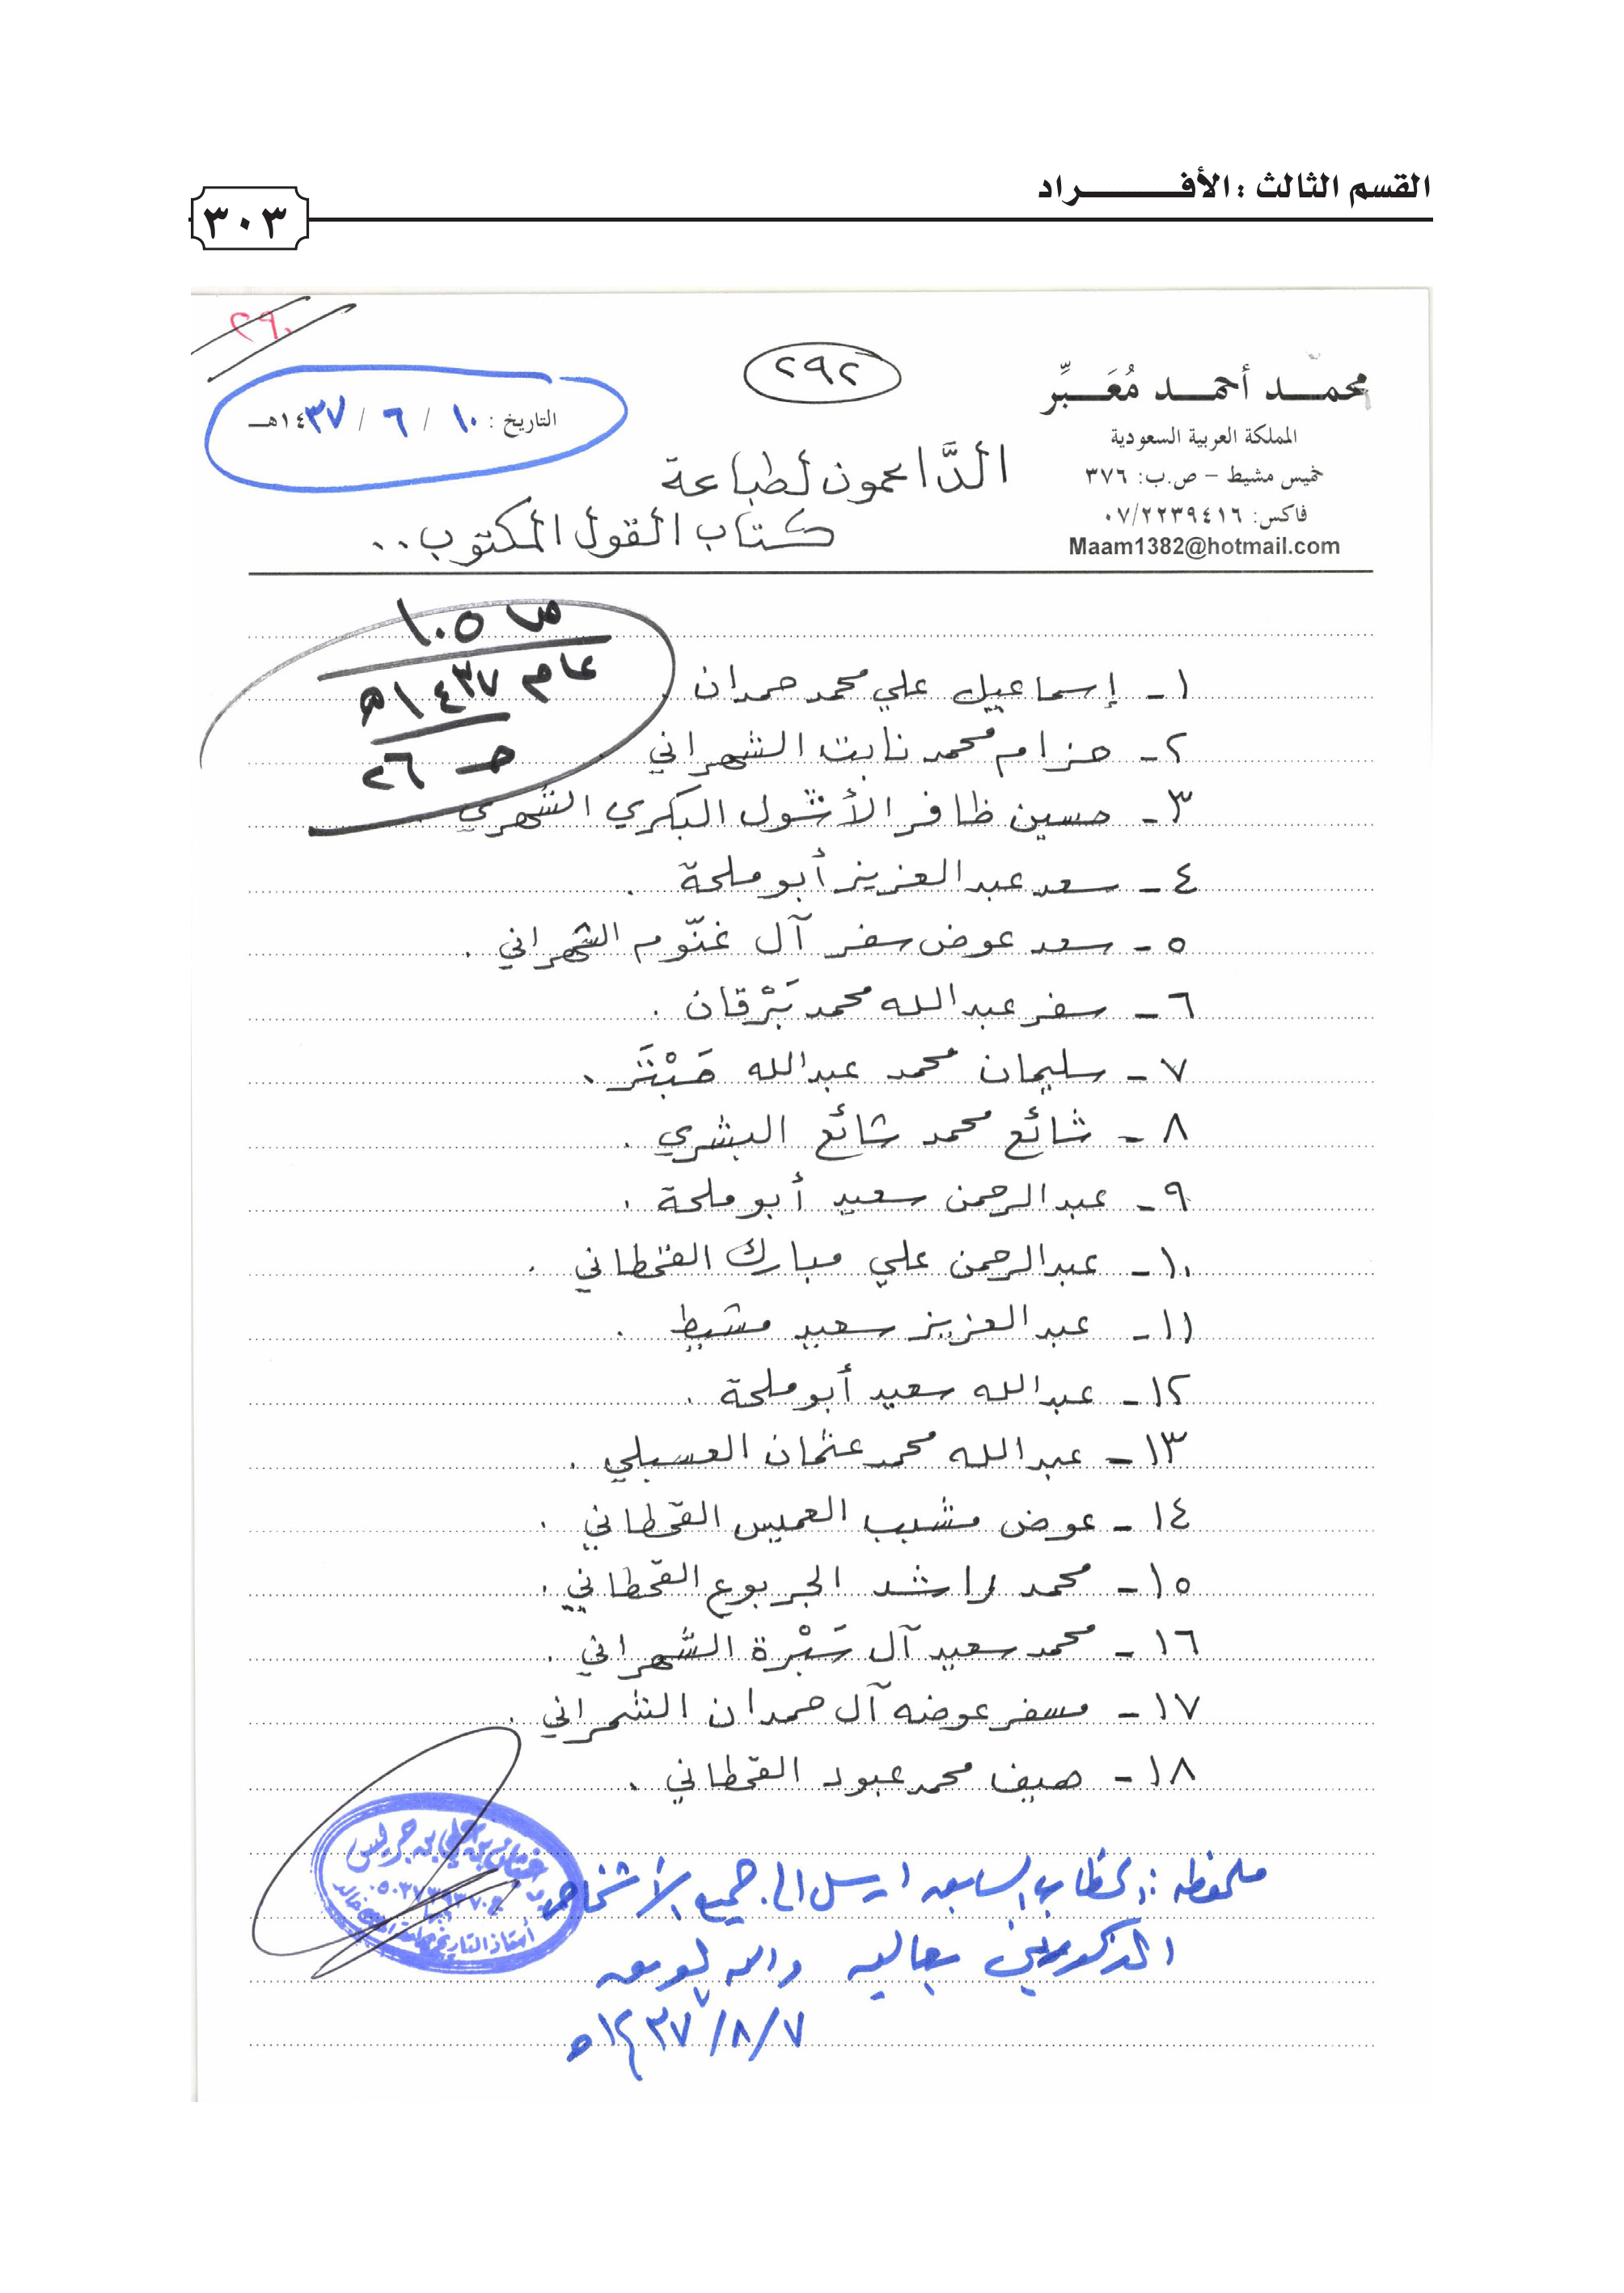 القسم الثالث : الأفـــــــــراد
٣٠٣
٢٩٠
٢٩٢
محمّـــد أحمـــد مُعَـــبِّر
المملكة العربية السعودية
خميس مشيط – ص.ب: ٣٧٦
فاكس: ٠٧/٢٢٣٩٤١٦
Maam1382@hotmail.com
التاريخ : ١٠ / ٦ / ١٤٣٧هـ
الدَّاعمون لطباعة
كتاب القول المكتوب ..
ص ١٠٥
عام ١٤٣٧هـ
حـ ٢٦
١ـ إسماعيل علي محمد حمدان .
٢ـ هزام محمد نابت الشهراني
٣ـ حسين ظافر الأشول البكري الشهري .
٤ـ سعد عبدالعزيز أبو ملحة .
٥ـ سعد عوض سفر آل غنّوم الشهراني .
٦ـ سفر عبدالله محمد بَرْقان .
٧ـ سليمان محمد عبدالله حَبْتَر .
٨ـ شائع محمد شائع البشري .
٩ـ عبدالرحمن سعيد أبو ملحة .
١٠ـ عبدالرحمن علي مبارك القحطاني .
١١ـ عبدالعزيز سعيد مشيط .
١٢ـ عبدالله سعيد أبو ملحة .
١٣ـ عبدالله محمد عثمان العسبلي .
١٤ـ عوض مشبب العميس القحطاني .
١٥ـ محمد راشد الجربوع القحطاني .
١٦ـ محمد سعيد آل سَبْرة الشهراني .
١٧ـ مسفر عوضه آل حمدان الشمراني .
١٨ـ هيف محمد عبود القحطاني .
ملحوظة : الخطاب السابق ارسل الى جميع الأشخاص
المذكورين بعاليه والله الموفق
٧/٨/١٤٣٧هـ
غيثان بن علي بن جريس
أستاذ التاريخ بجامعة الملك خالد